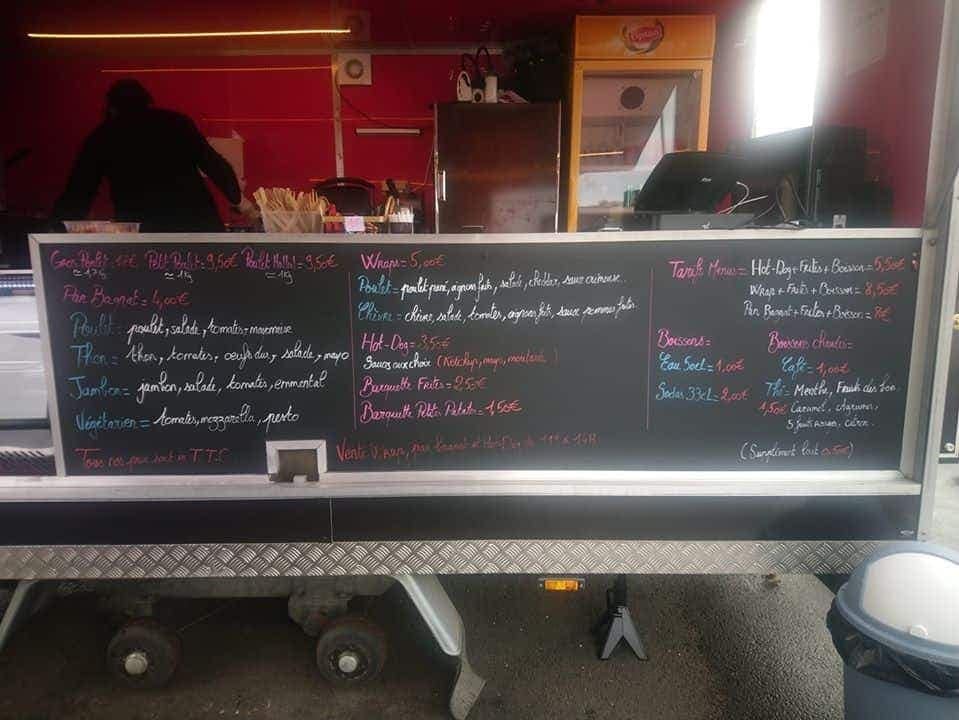 Gros Poulet = 17€ Petit Poulet = 9,50€ Poulet Hallal = 9,50€
≃ 1,7 kg ≃ 1 kg ≃ 1 kg
Pan Bagnat = 4,00€
Poulet = poulet, salade, tomates, mayonnaise
Thon = thon, tomates, oeufs dur, salade, mayo
Jambon = jambon, salade, tomates, emmental
Végétarien = tomates, mozzarella, pesto
Tous nos prix sont en T.T.C
Wraps = 5,00€
Poulet = poulet pané, oignons frits, salade, cheddar, sauce crémeuse
Chèvre = chèvre, salade, tomates, oignons frits, sauce pommes frites
Hot-Dog = 3,50€
Sauces aux choix (Ketchup, mayo, moutarde)
Barquette Frites = 2,50€
Barquette Petites Potatoes = 1,50€
Vente Wrap, pan bagnat et Hot-Dog de 11H à 14H
Tarifs Menus = Hot-Dog + Frites + Boisson = 5,50€
Wrap + Frites + Boisson = 8,50€
Pan Bagnat + Frites + Boisson = 8€
Boissons =
Eau 50cL = 1,00€
Sodas 33cL = 2,00€
Boissons chaudes =
Café = 1,00€
Thé = Menthe, Fruits des bois
1,50€ Caramel, agrumes,
citron
(Supplément lait 0,50€)